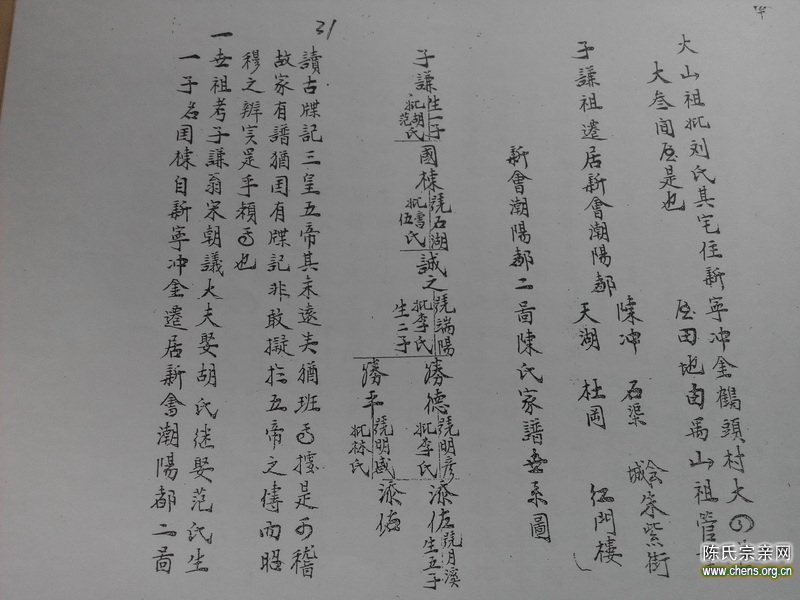 火山祖妣刘氏其宅住新寧冲金鶴頭村大
大叁间屋是也
屋田地由禹山祖管
子謙祖遷居新會潮陽都
陳冲 石渠 會城朱紫街
天湖 杜岡 紅門樓
新會潮陽都二啚陳氏家譜世系圖
子謙 生一子 妣胡氏范 國棟 號石湖 妣雷氏伍 誠之 號端陽 妣李氏 生二子 勝德 號明彦 妣李氏 添佐 號月溪 生五子
勝平 號明感 妣林氏 添佑
31
讀古牒記三皇五帝其来遠矣猶班可據是可稽
故家有譜猶国有牒記非敢擬於五帝之傳而昭
穆之辨实是乎頼可也
一世祖考子謙翁宋朝議大夫娶胡氏继娶范氏生
一子名国棟自新寧冲金遷居新會潮陽都二啚
陈氏宗亲网
www.chens.org.cn